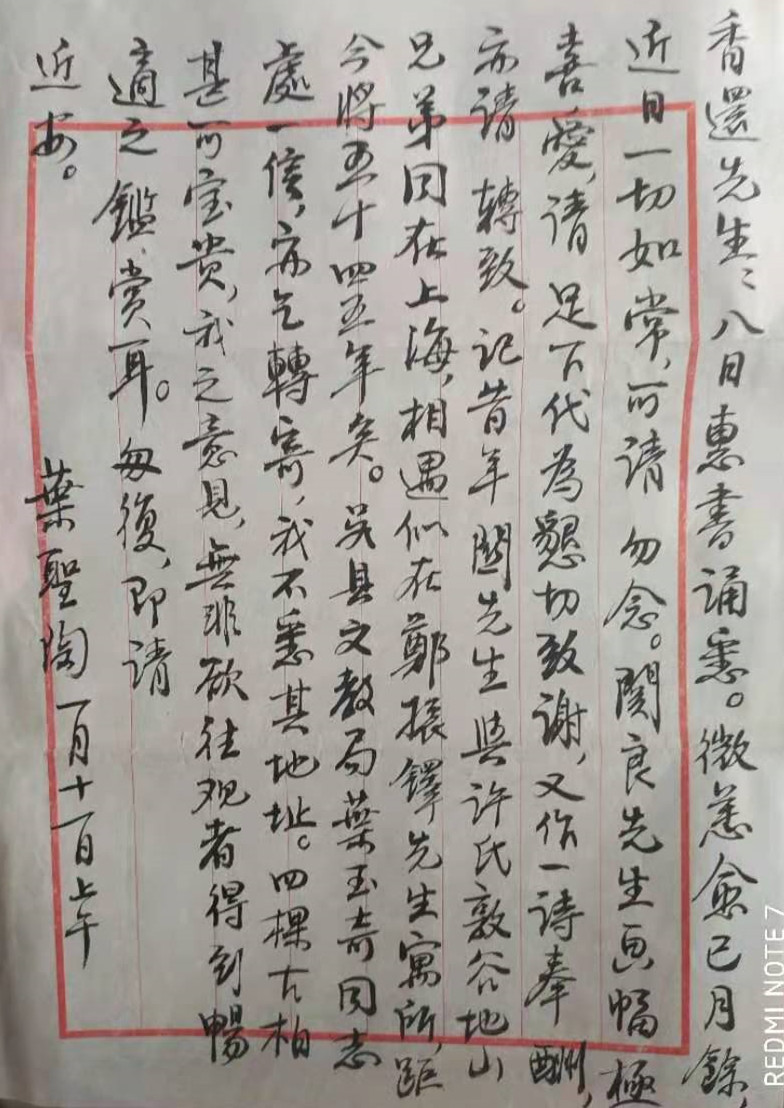 香還先生：八日惠書誦悉。微恙愈已月餘，
近日一切如常，可請 勿念。關良先生画幅極
喜愛，請 足下代為懇切致謝，又作一詩奉酬，
亦請 轉致。記昔年關先生與許氏敦谷地山
兄弟同在上海，相遇似在鄭振鐸先生寓所，距
今將五十四五年矣。吴县文教局葉玉奇同志
處一信，亦乞轉寄，我不悉其地址。四棵古柏
甚可宝貴，我之意見，無非欲往观者得到暢
適之鑑賞耳。匆復，即請
近安。
葉聖陶 一月十一日上午
REDMI NOTE 7